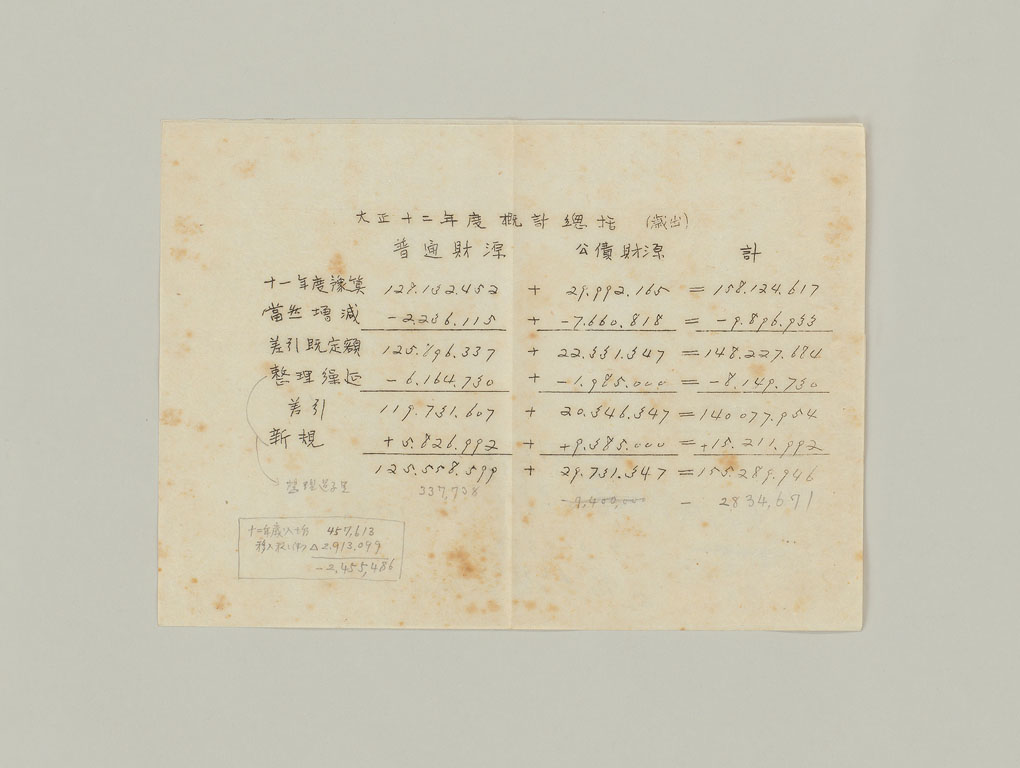 大正十二年度概計總括 (歳出)
普通財源 公債財源 計
十一年度豫算 128.132.452 + 29.992.165 = 158.124.617
當然增減 -2.236.115 + -7.660.818 = -9.896.933
差引既定額 125.896.337 + 22.331.347 = 148.227.684
整理繰延 -6.164.730 + -1.985.000 = -8.149.730
差引 119.731.607 + 20.346.347 = 140.077.954
新規 +5.826.992 + +9.385.000 = +15.211.992
125.558.599 + 29.731.347 = 155.289.946
整理 337,738 - 2834,671
十一年度 457,613
△2.913,099
-2,455,486